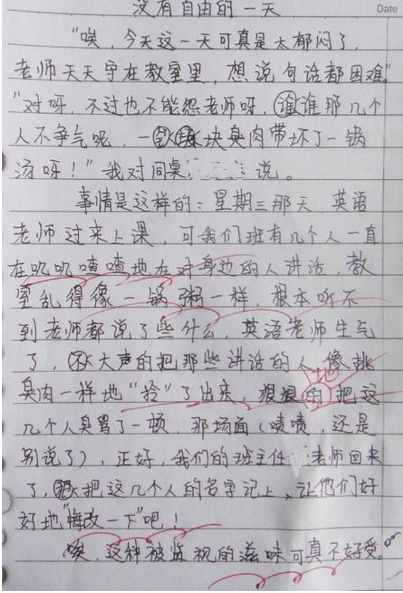 没有自由的一天
Date
“唉,今天这一天可真是太郁闷了,
老师天天守在教室里,想说句话都困难”
“对呀,不过也不能怨老师呀,谁谁那几个
人不争气呢,一块臭肉带坏了一锅
汤呀!”我对同桌 说。
事情是这样的:星期三那天,英语
老师过来上课,可我们班有几个人一直
在叽叽喳喳地在对身边的人讲话,教
室乱得像一锅粥一样,根本听不
到老师都说了些什么,英语老师生气
了,大声的把那些讲话的人像挑
臭肉一样地“拎”了出来,狠狠的把这
地
几个人臭骂了一顿,那场面(啧啧,还是
别说了),正好,我们的班主任 老师回来
了,把这几个人的名字记上,让他们好
好地“悔改一下”吧!
唉,这种被监视的滋味可真不好受。